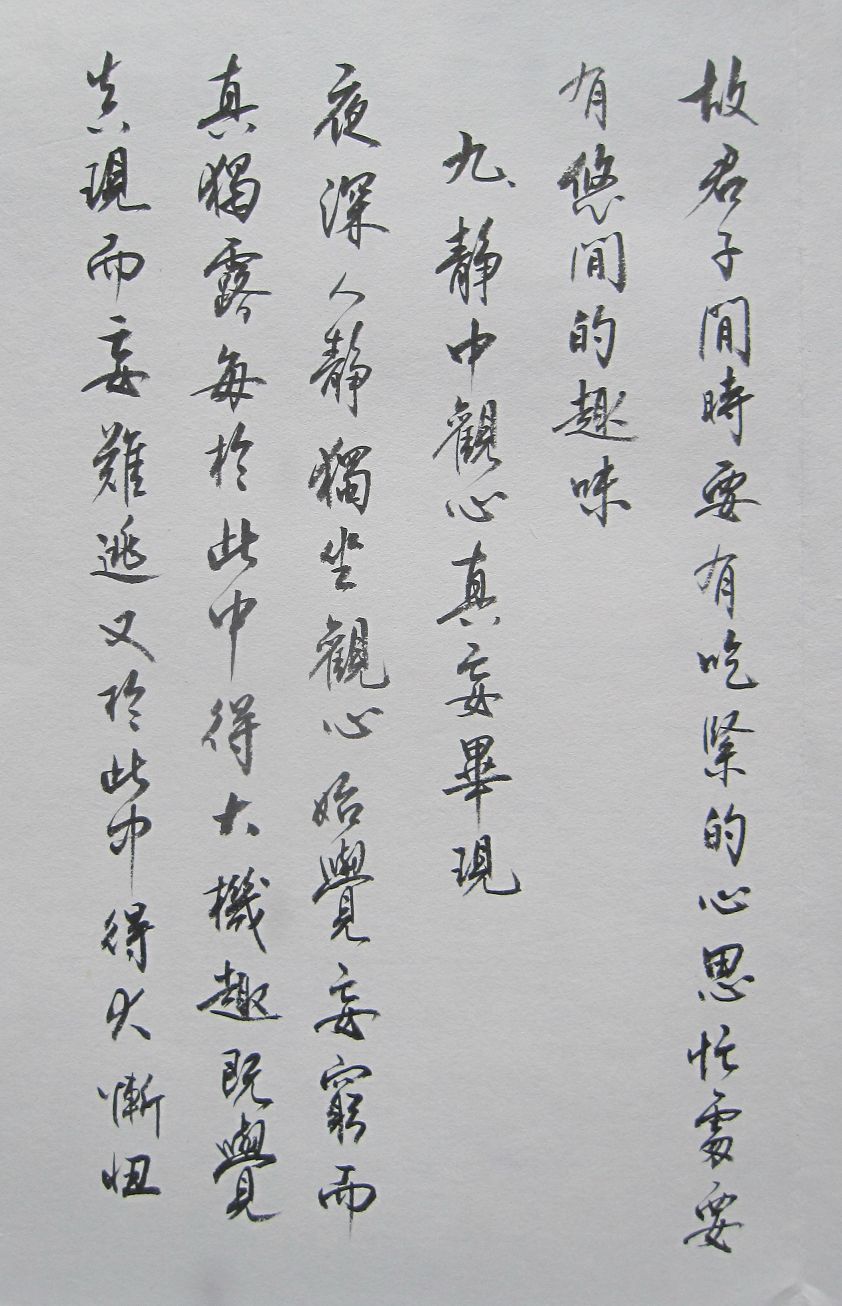 故君子閒時要有吃緊的心思忙處要
有悠閒的趣味
九、静中觀心真妄畢現
夜深人静獨坐觀心始覺妄窮而
真獨露每於此中得大機趣既覺
真現而妄難逃又於此中得大慚忸